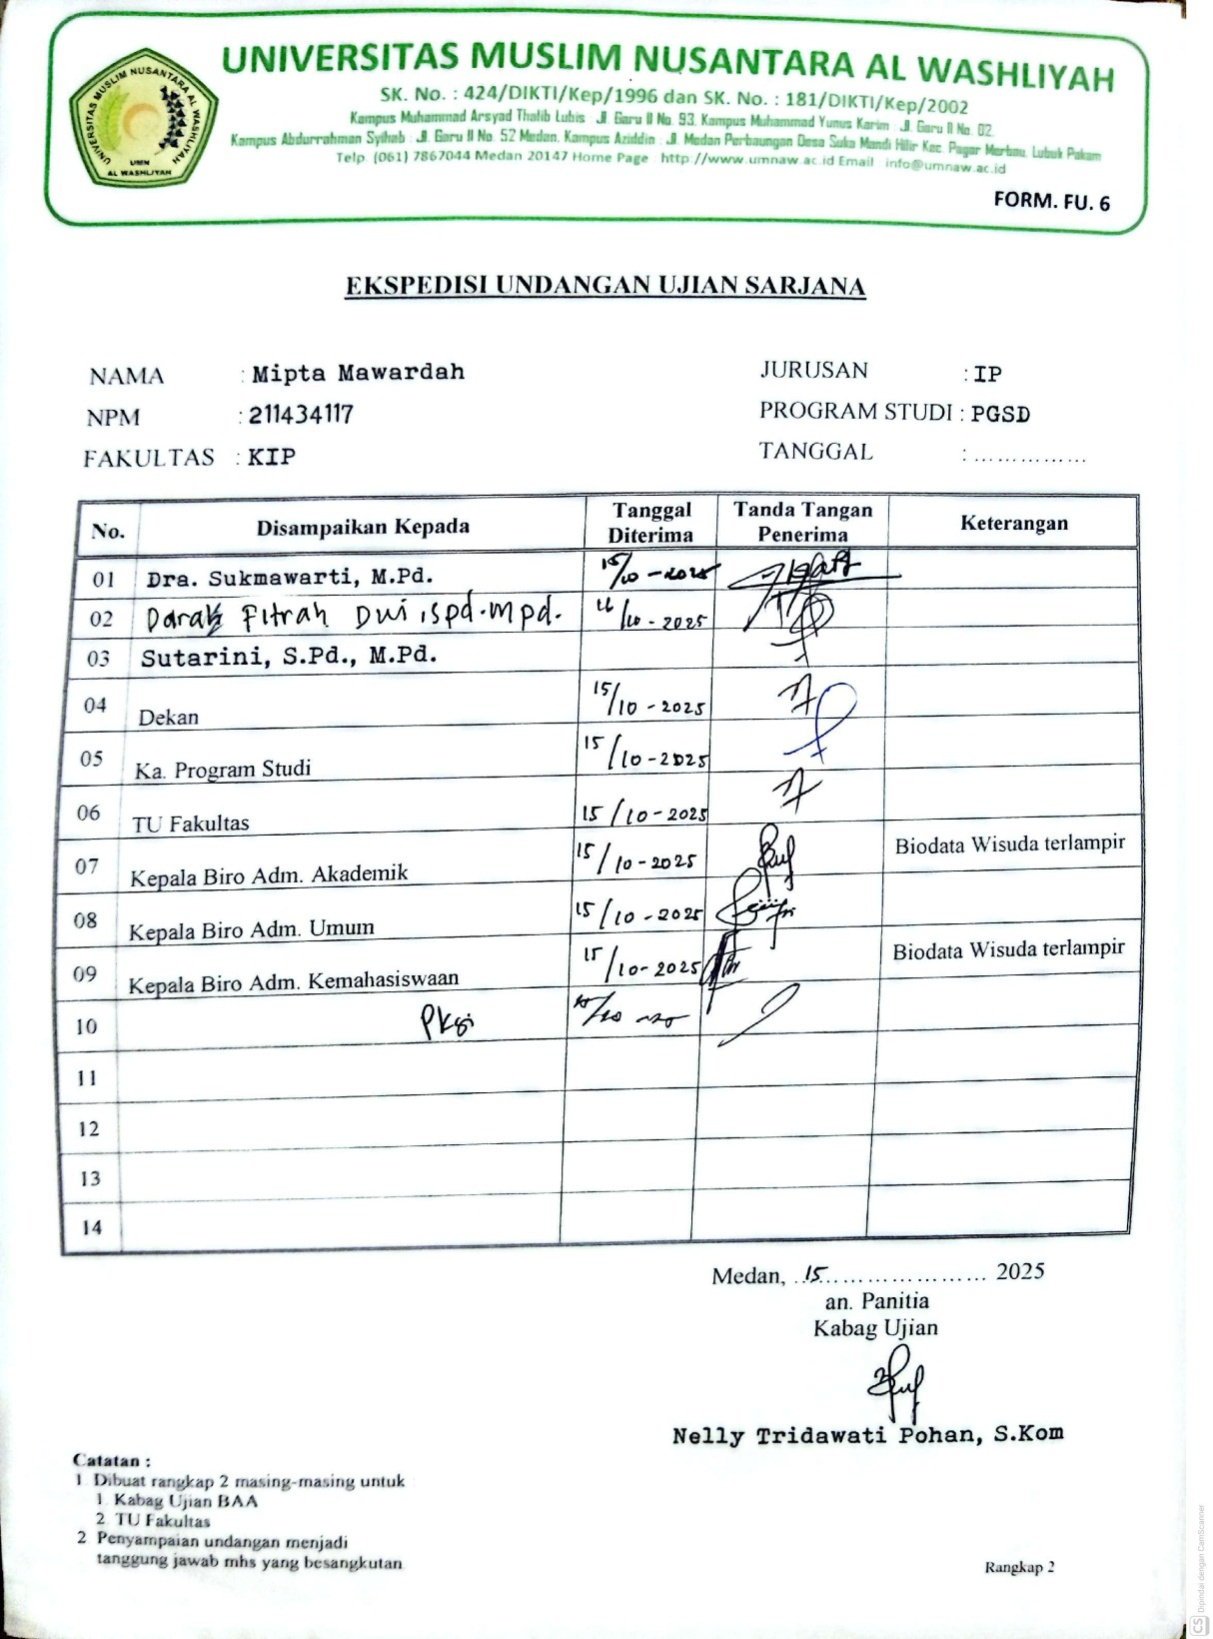 UNIVERSITAS MUSLIM NUSANTARA AL WASHLIYAH
SK. No. : 424/DIKTI/Kep/1996 dan SK. No. : 181/DIKTI/Kep/2002
Kampus Muhammad Arsyad Thalib Lubis : Jl. Garu II No. 93, Kampus Muhammad Yunus Karim : Jl. Garu II No. 02,
Kampus Abdurrahman Syihab : Jl. Garu II No. 52 Medan, Kampus Aziddin : Jl. Medan Perbaungan Desa Suka Mandi Hilir Kec. Pagar Merbau, Lubuk Pakam
Telp. (061) 7867044 Medan 20147 Home Page : http://www.umnaw.ac.id Email : info@umnaw.ac.id
UNIVERSITAS MUSLIM NUSANTARA AL WASHLIYAH
UMN
AL WASHLIYAH
FORM. FU. 6
EKSPEDISI UNDANGAN UJIAN SARJANA
NAMA : Mipta Mawardah
JURUSAN : IP
NPM : 211434117
PROGRAM STUDI : PGSD
FAKULTAS : KIP
TANGGAL : ...............
No. Disampaikan Kepada Tanggal Diterima Tanda Tangan Penerima Keterangan
01 Dra. Sukmawarti, M.Pd. 15/10-2025
02 Darak Fitrah Dwi, Spd. Mpd. 16/10-2025
03 Sutarini, S.Pd., M.Pd.
04 Dekan 15/10-2025
05 Ka. Program Studi 15/10-2025
06 TU Fakultas 15/10-2025
07 Kepala Biro Adm. Akademik 15/10-2025 Biodata Wisuda terlampir
08 Kepala Biro Adm. Umum 15/10-2025
09 Kepala Biro Adm. Kemahasiswaan 15/10-2025 Biodata Wisuda terlampir
10
11
12
13
14
Medan, ..15........................ 2025
an. Panitia
Kabag Ujian
Nelly Tridawati Pohan, S.Kom
Catatan :
1. Dibuat rangkap 2 masing-masing untuk
1. Kabag Ujian BAA
2. TU Fakultas
2. Penyampaian undangan menjadi
tanggung jawab mhs yang besangkutan
Rangkap 2
CS Dipindai dengan CamScanner